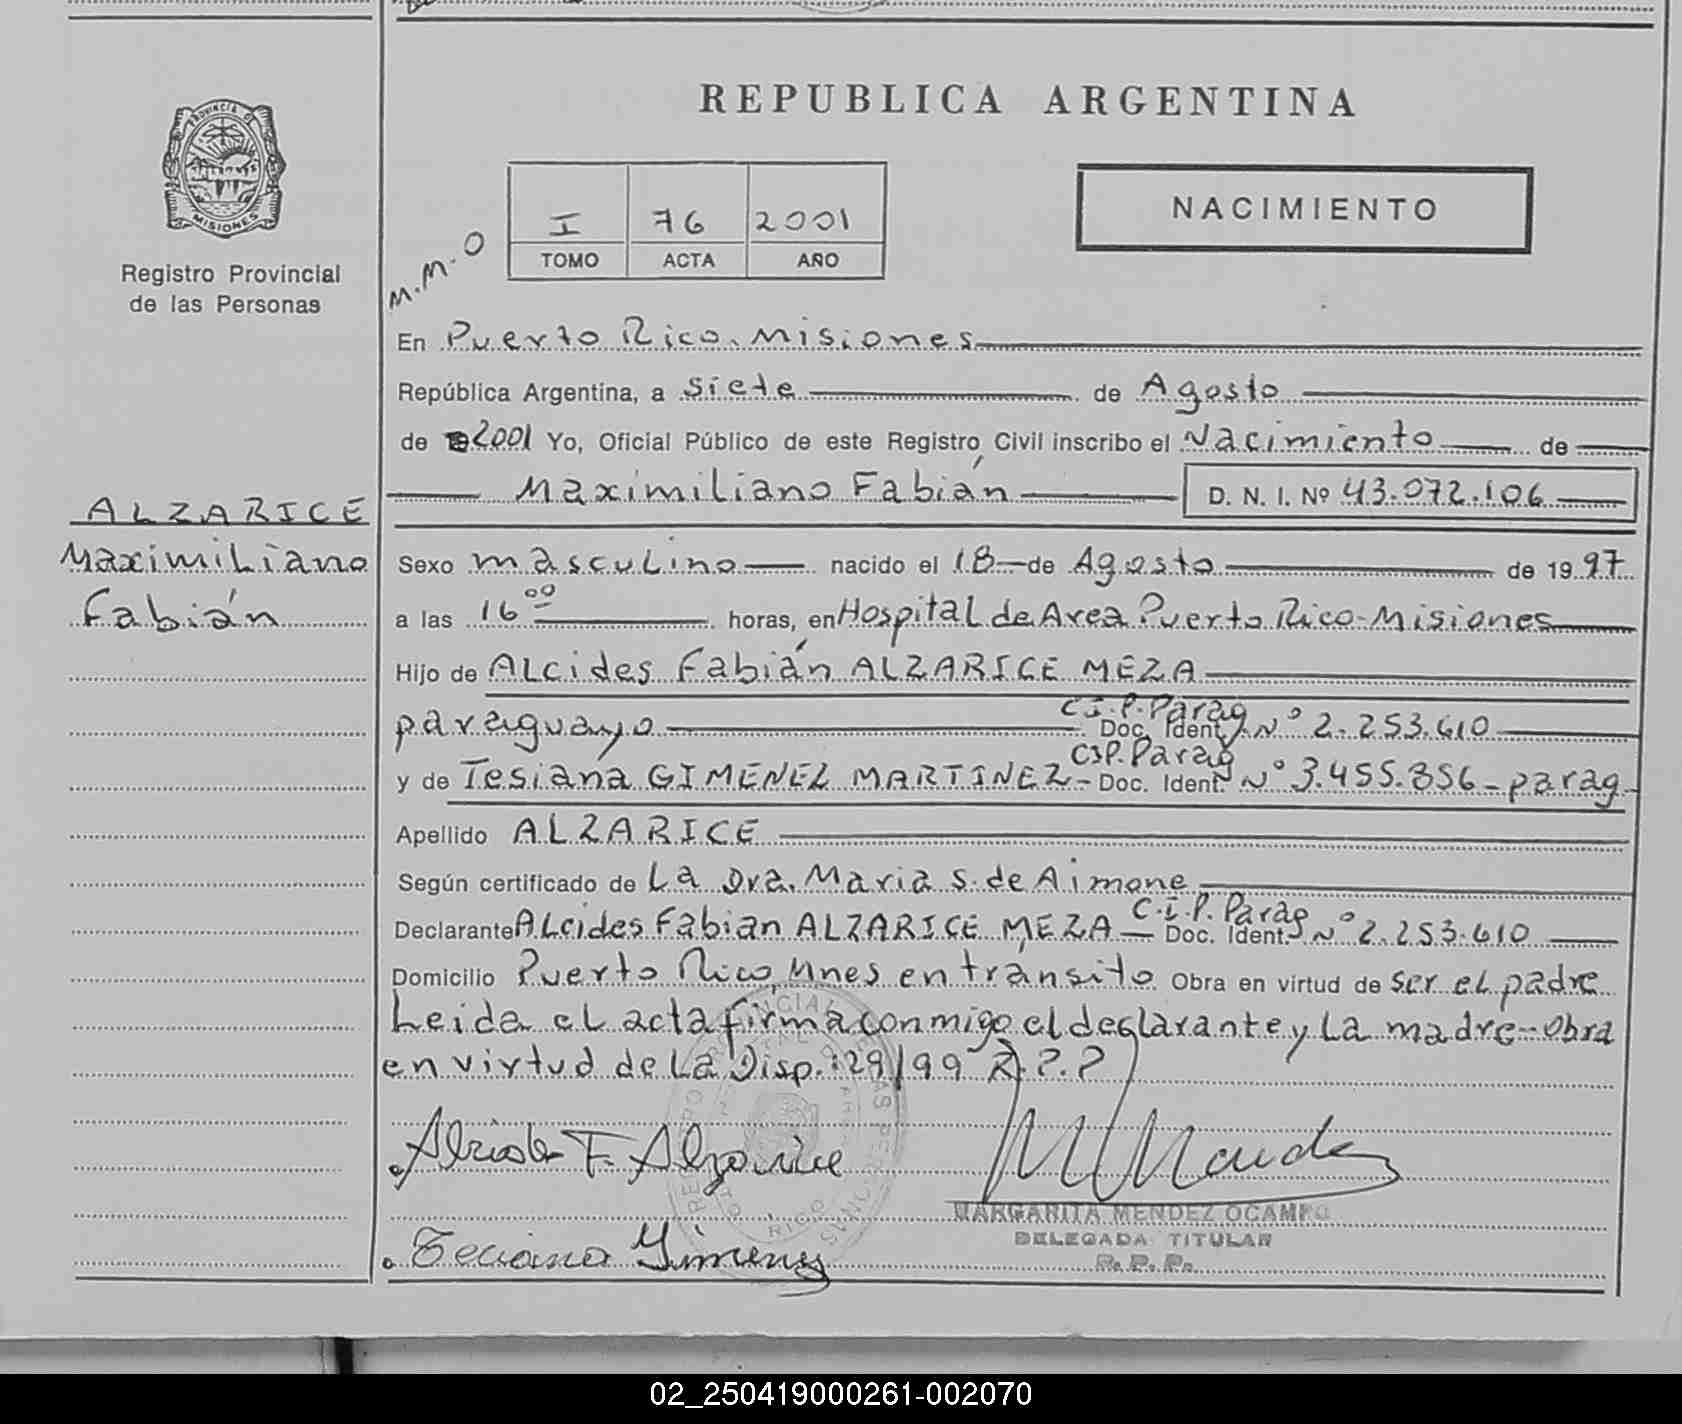 REPUBLICA ARGENTINA
PROVINCIA DE
MISIONES
Registro Provincial
de las Personas
NACIMIENTO
I 76 2001
TOMO ACTA AÑO
M.M.O
En Puerto Rico. Misiones
República Argentina, a siete de Agosto
de 2001 Yo, Oficial Público de este Registro Civil inscribo el Nacimiento de
Maximiliano Fabián D. N. I. Nº 43.072.106
ALZARICE
Maximiliano
Fabián
Sexo masculino nacido el 18 de Agosto de 1997
a las 16 00 horas, en Hospital de Area Puerto Rico-Misiones
Hijo de ALcides Fabián ALZARICE MEZA
paraguayo C.I.P. Parag Doc. Ident. Nº 2.253.610
y de Tesiana GIMENEZ MARTINEZ- CIP. Parag Doc. Ident. Nº 3.455.856-parag-
Apellido ALZARICE
Según certificado de La Dra. Maria S. de Aimone
Declarante ALcides Fabian ALZARICE MEZA - C.I.P. Parag Doc. Ident. Nº 2.253.610
Domicilio Puerto Rico Mnes en tránsito Obra en virtud de ser el padre
Leida el acta firma conmigo el declarante y La madre-obra
en virtud de La Disp.:29/99 R.P.P
Alcides F. Alzarice
Teciana Gimenez
MARGARITA MENDEZ OCAMPO
DELEGADA TITULAR
R. P. P.
02_250419000261-002070